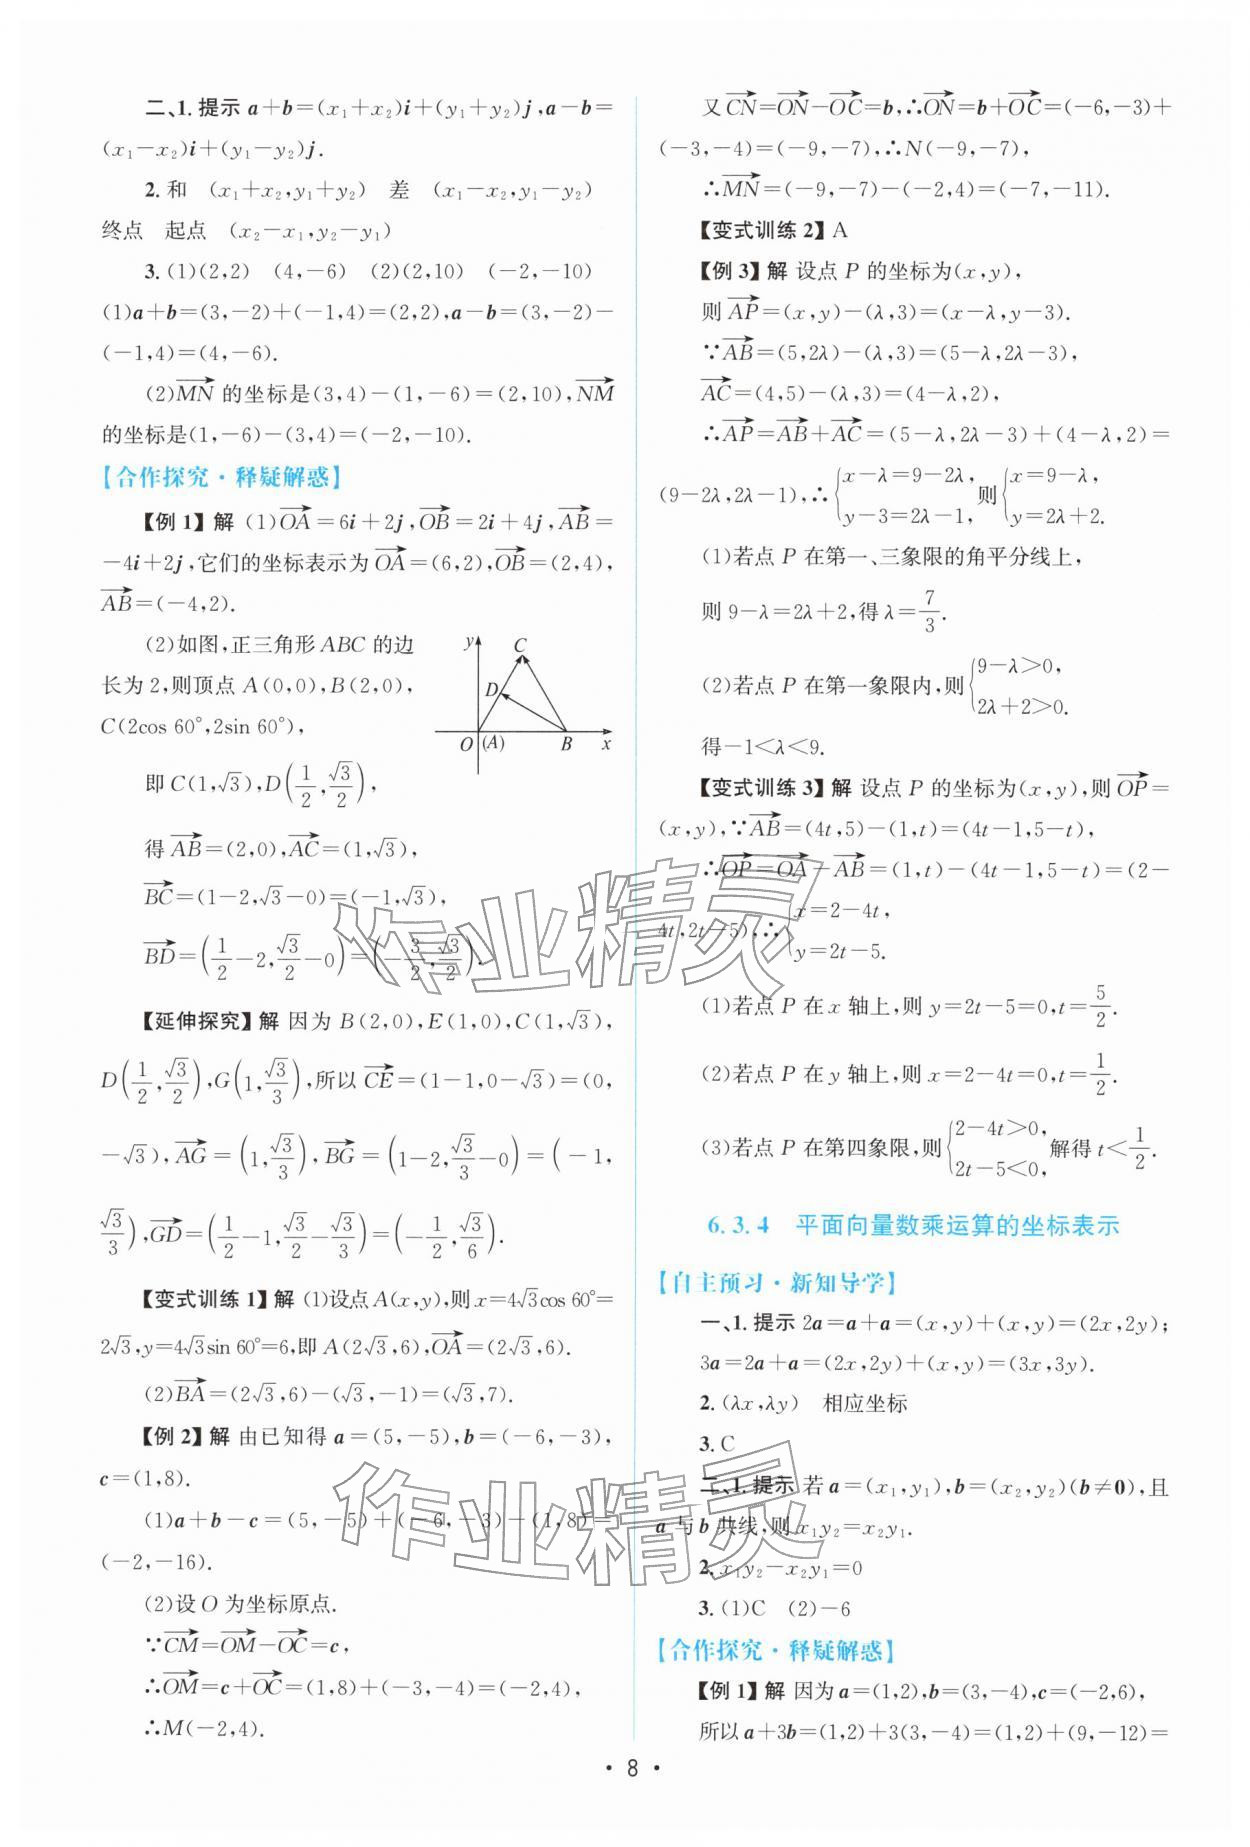 二、1.提示 a+b=(x₁+x₂)i+(y₁+y₂)j,a-b=
(x₁-x₂)i+(y₁-y₂)j.
2.和 (x₁+x₂,y₁+y₂) 差 (x₁-x₂,y₁-y₂)
终点 起点 (x₂-x₁,y₂-y₁)
3.(1)(2,2) (4,-6) (2)(2,10) (-2,-10)
(1)a+b=(3,-2)+(-1,4)=(2,2),a-b=(3,-2)-
(-1,4)=(4,-6).
(2)\overrightarrow{MN} 的坐标是(3,4)-(1,-6)=(2,10),\overrightarrow{NM}
的坐标是(1,-6)-(3,4)=(-2,-10).
【合作探究·释疑解惑】
【例1】解 (1)\overrightarrow{OA}=6i+2j,\overrightarrow{OB}=2i+4j,\overrightarrow{AB}=
-4i+2j,它们的坐标表示为\overrightarrow{OA}=(6,2),\overrightarrow{OB}=(2,4),
\overrightarrow{AB}=(-4,2).
(2)如图,正三角形ABC的边
长为2,则顶点A(0,0),B(2,0),
C(2cos 60°,2sin 60°),
y C
D
O (A) B x
即C(1,√3),D(1/2,√3/2),
得\overrightarrow{AB}=(2,0),\overrightarrow{AC}=(1,√3),
\overrightarrow{BC}=(1-2,√3-0)=(-1,√3),
\overrightarrow{BD}=(1/2-2,√3/2-0)=(-3/2,√3/2).
【延伸探究】解 因为B(2,0),E(1,0),C(1,√3),
D(1/2,√3/2),G(1,√3/3),所以\overrightarrow{CE}=(1-1,0-√3)=(0,
-√3),\overrightarrow{AG}=(1,√3/3),\overrightarrow{BG}=(1-2,√3/3-0)=(-1,
√3/3),\overrightarrow{GD}=(1/2-1,√3/2-√3/3)=(-1/2,√3/6).
【变式训练1】解 (1)设点A(x,y),则x=4√3cos 60°=
2√3,y=4√3sin 60°=6,即A(2√3,6),\overrightarrow{OA}=(2√3,6).
(2)\overrightarrow{BA}=(2√3,6)-(√3,-1)=(√3,7).
【例2】解 由已知得a=(5,-5),b=(-6,-3),
c=(1,8).
(1)a+b-c=(5,-5)+(-6,-3)-(1,8)=
(-2,-16).
(2)设O为坐标原点.
∵\overrightarrow{CM}=\overrightarrow{OM}-\overrightarrow{OC}=c,
∴\overrightarrow{OM}=c+\overrightarrow{OC}=(1,8)+(-3,-4)=(-2,4),
∴M(-2,4).
又\overrightarrow{CN}=\overrightarrow{ON}-\overrightarrow{OC}=b,∴\overrightarrow{ON}=b+\overrightarrow{OC}=(-6,-3)+
(-3,-4)=(-9,-7),∴N(-9,-7),
∴\overrightarrow{MN}=(-9,-7)-(-2,4)=(-7,-11).
【变式训练2】A
【例3】解 设点P的坐标为(x,y),
则\overrightarrow{AP}=(x,y)-(λ,3)=(x-λ,y-3).
∵\overrightarrow{AB}=(5,2λ)-(λ,3)=(5-λ,2λ-3),
\overrightarrow{AC}=(4,5)-(λ,3)=(4-λ,2),
∴\overrightarrow{AP}=\overrightarrow{AB}+\overrightarrow{AC}=(5-λ,2λ-3)+(4-λ,2)=
(9-2λ,2λ-1),∴{x-λ=9-2λ, y-3=2λ-1, 则{x=9-λ, y=2λ+2.
(1)若点P在第一、三象限的角平分线上,
则9-λ=2λ+2,得λ=7/3.
(2)若点P在第一象限内,则{9-λ>0, 2λ+2>0.
得-1<λ<9.
【变式训练3】解 设点P的坐标为(x,y),则\overrightarrow{OP}=
(x,y),∵\overrightarrow{AB}=(4t,5)-(1,t)=(4t-1,5-t),
∴\overrightarrow{OP}=\overrightarrow{OA}-\overrightarrow{AB}=(1,t)-(4t-1,5-t)=(2-
4t,2t-5),∴{x=2-4t, y=2t-5.
(1)若点P在x轴上,则y=2t-5=0,t=5/2.
(2)若点P在y轴上,则x=2-4t=0,t=1/2.
(3)若点P在第四象限,则{2-4t>0, 2t-5<0, 解得t<1/2.
6.3.4 平面向量数乘运算的坐标表示
【自主预习·新知导学】
一、1.提示 2a=a+a=(x,y)+(x,y)=(2x,2y);
3a=2a+a=(2x,2y)+(x,y)=(3x,3y).
2.(λx,λy) 相应坐标
3.C
二、1.提示 若a=(x₁,y₁),b=(x₂,y₂)(b≠0),且
a与b共线,则x₁y₂=x₂y₁.
2.x₁y₂-x₂y₁=0
3.(1)C (2)-6
【合作探究·释疑解惑】
【例1】解 因为a=(1,2),b=(3,-4),c=(-2,6),
所以a+3b=(1,2)+3(3,-4)=(1,2)+(9,-12)=
·8·
作业精灵
作业精灵